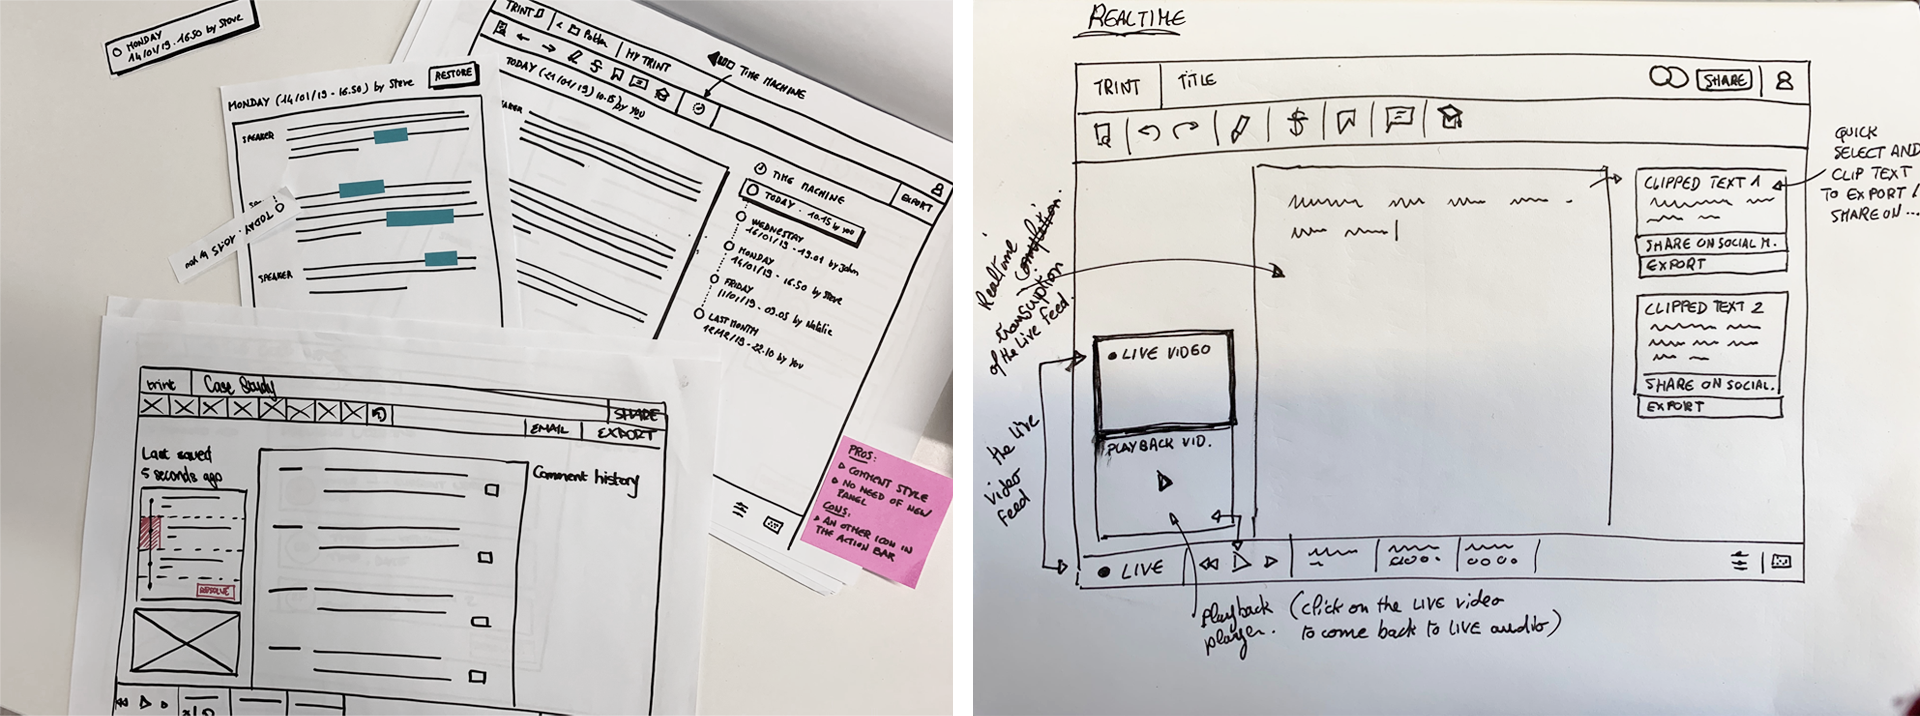 MONDAY
14/01/19 - 16.50 by Steve
MONDAY (14/01/19 - 16.50) by Steve
RESTORE
SPEAKER
SPEAKER
TODAY - 10.15 by you
TRINT
< Potter
MY TRINT
TIME MACHINE
TODAY (21/01/19) 10.15 by you
EXPORT
TIME MACHINE
TODAY - 10.15 by you
WEDNESDAY
16/01/19 - 19.01 by John
MONDAY
14/01/19 - 16.50 by Steve
FRIDAY
11/01/19 - 09.05 by Natalie
LAST MONTH
12/12/19 - 22.10 by you
trint
Case Study
SHARE
EMAIL
EXPORT
Last saved
5 seconds ago
RESOLVE
Comment history
PROS:
COMMENT STYLE
NO NEED OF NEW
PANEL
CONS:
AN OTHER ICON IN
THE ACTION BAR
REALTIME
TRINT
TITLE
SHARE
QUICK
SELECT AND
CLIP TEXT
TO EXPORT /
SHARE ON ...
CLIPPED TEXT 1
SHARE ON SOCIAL M.
EXPORT
CLIPPED TEXT 2
SHARE ON SOCIAL.
EXPORT
Realtime
transcription
of the Live feed.
LIVE VIDEO
PLAYBACK VID.
the live
video
feed
LIVE
Playback
player.
(click on the LIVE video
to come back to LIVE audio)